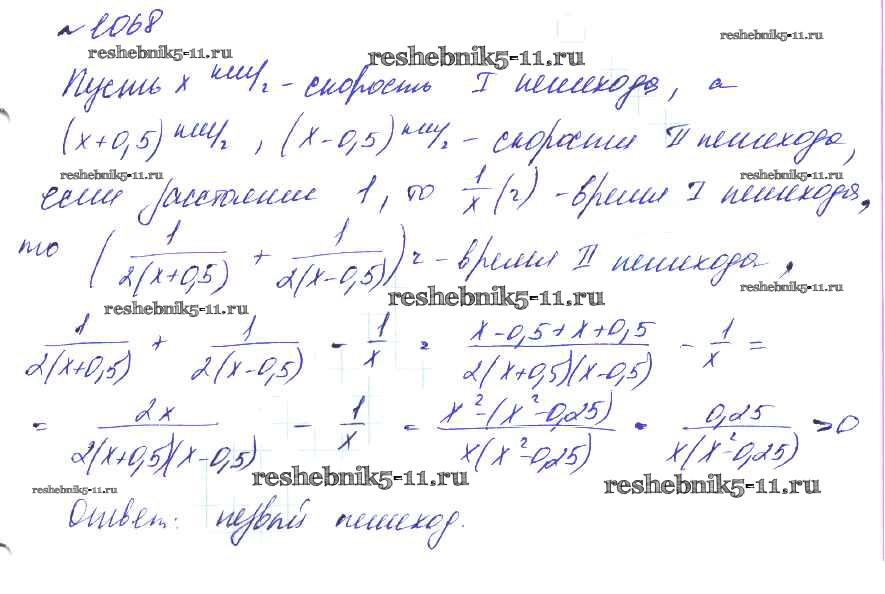 № 1068
reshebnik5-11.ru reshebnik5-11.ru reshebnik5-11.ru
Пусть x км/г - скорость I пешехода, а
(x+0,5) км/г, (x-0,5) км/г - скорости II пешехода,
reshebnik5-11.ru reshebnik5-11.ru
если расстояние 1, то 1/x (г) - время I пешехода,
то (1/2(x+0,5) + 1/2(x-0,5)) г - время II пешехода,
reshebnik5-11.ru reshebnik5-11.ru reshebnik5-11.ru
1/2(x+0,5) + 1/2(x-0,5) - 1/x = x-0,5+x+0,5/2(x+0,5)(x-0,5) - 1/x =
= 2x/2(x+0,5)(x-0,5) - 1/x = x²-(x²-0,25)/x(x²-0,25) = 0,25/x(x²-0,25) > 0
reshebnik5-11.ru reshebnik5-11.ru reshebnik5-11.ru
Ответ: первый пешеход.
reshebnik5-11.ru reshebnik5-11.ru